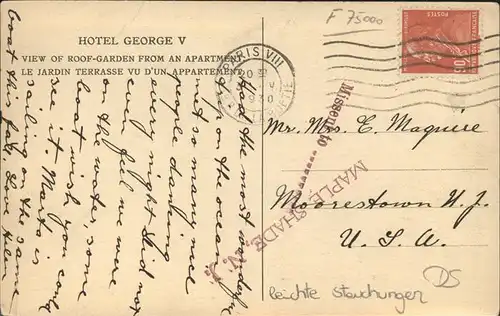 HOTEL GEORGE V
VIEW OF ROOF-GARDEN FROM AN APARTMENT
LE JARDIN TERRASSE VU D'UN APPARTEMENT
Had the most wonderful
trip on the ocean
met so many nice
people dancing
every night Did not
even feel we were
on the water, some
boat wish you could
see it. Marta is
sailing on the same
boat this fall. Love Helen
F 75000
PARIS VIII
POSTES
Missent to
MAPLE SHADE, N. J.
Mr. Mrs. C. Maguire
Moorestown N. J.
U. S. A.
leichte Stauchungen
DS